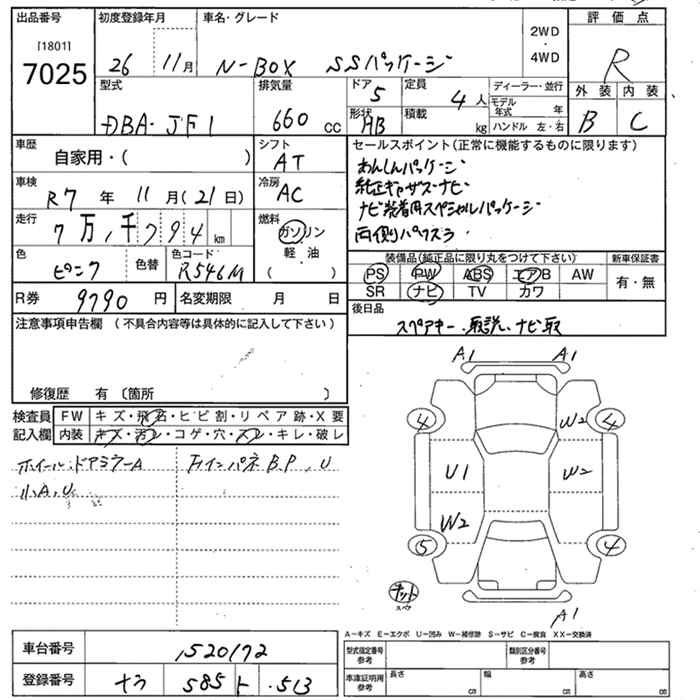 出品番号 初度登録年月 車名・グレード 評価点
[1801]
7025 26 11月 N-BOX SSパッケージ 2WD・4WD R
型式 排気量 ドア 5 定員 4人 ディーラー・並行 外装 内装
DBA-JF1 660cc 形状 HB 積載 kg モデル年式 年 B C
ハンドル 左・右
車歴 シフト セールスポイント(正常に機能するものに限ります)
自家用・( ) AT あんしんパッケージ
車検 冷房 純正ギャザズナビ
R7年 11月(21日) AC ナビ装着用スペシャルパッケージ
走行 燃料 両側パワスラ
7万,千794km ガソリン
軽・油
( )
色 色替 色コード 装備品(純正品に限り丸をつけて下さい) 新車保証書
ピンク R546M PS PW ABS エアB AW 有・無
R券 9790円 名変期限 月 日 SR ナビ TV カワ
注意事項申告欄(不具合内容等は具体的に記入して下さい) 後日品
スペアキー、取説、ナビ取
修復歴 有〔箇所 〕
検査員 FW キズ・飛石・ヒビ割・リペア跡・X要
記入欄 内装 キズ・汚レ・コゲ・穴・スレ・キレ・破レ
ホイール・ドアミラーA Fインパネ B.P, U
小A,U
A1 A1
4 W2 4
U1 W2
W2
5 4
キット
スペア
A1
A-キズ E-エクボ U-凹み W-補修跡 S-サビ C-腐食 XX-交換済
車台番号 1520172 型式指定番号 参考 類別区分番号 参考
登録番号 ナラ 585 ト .513 車庫証明用 参考 長さ cm 幅 cm 高さ cm